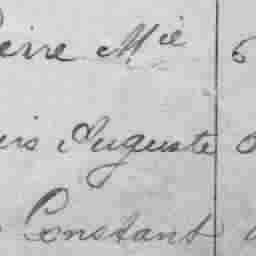 eire Mie 6
is Auguste
Constant